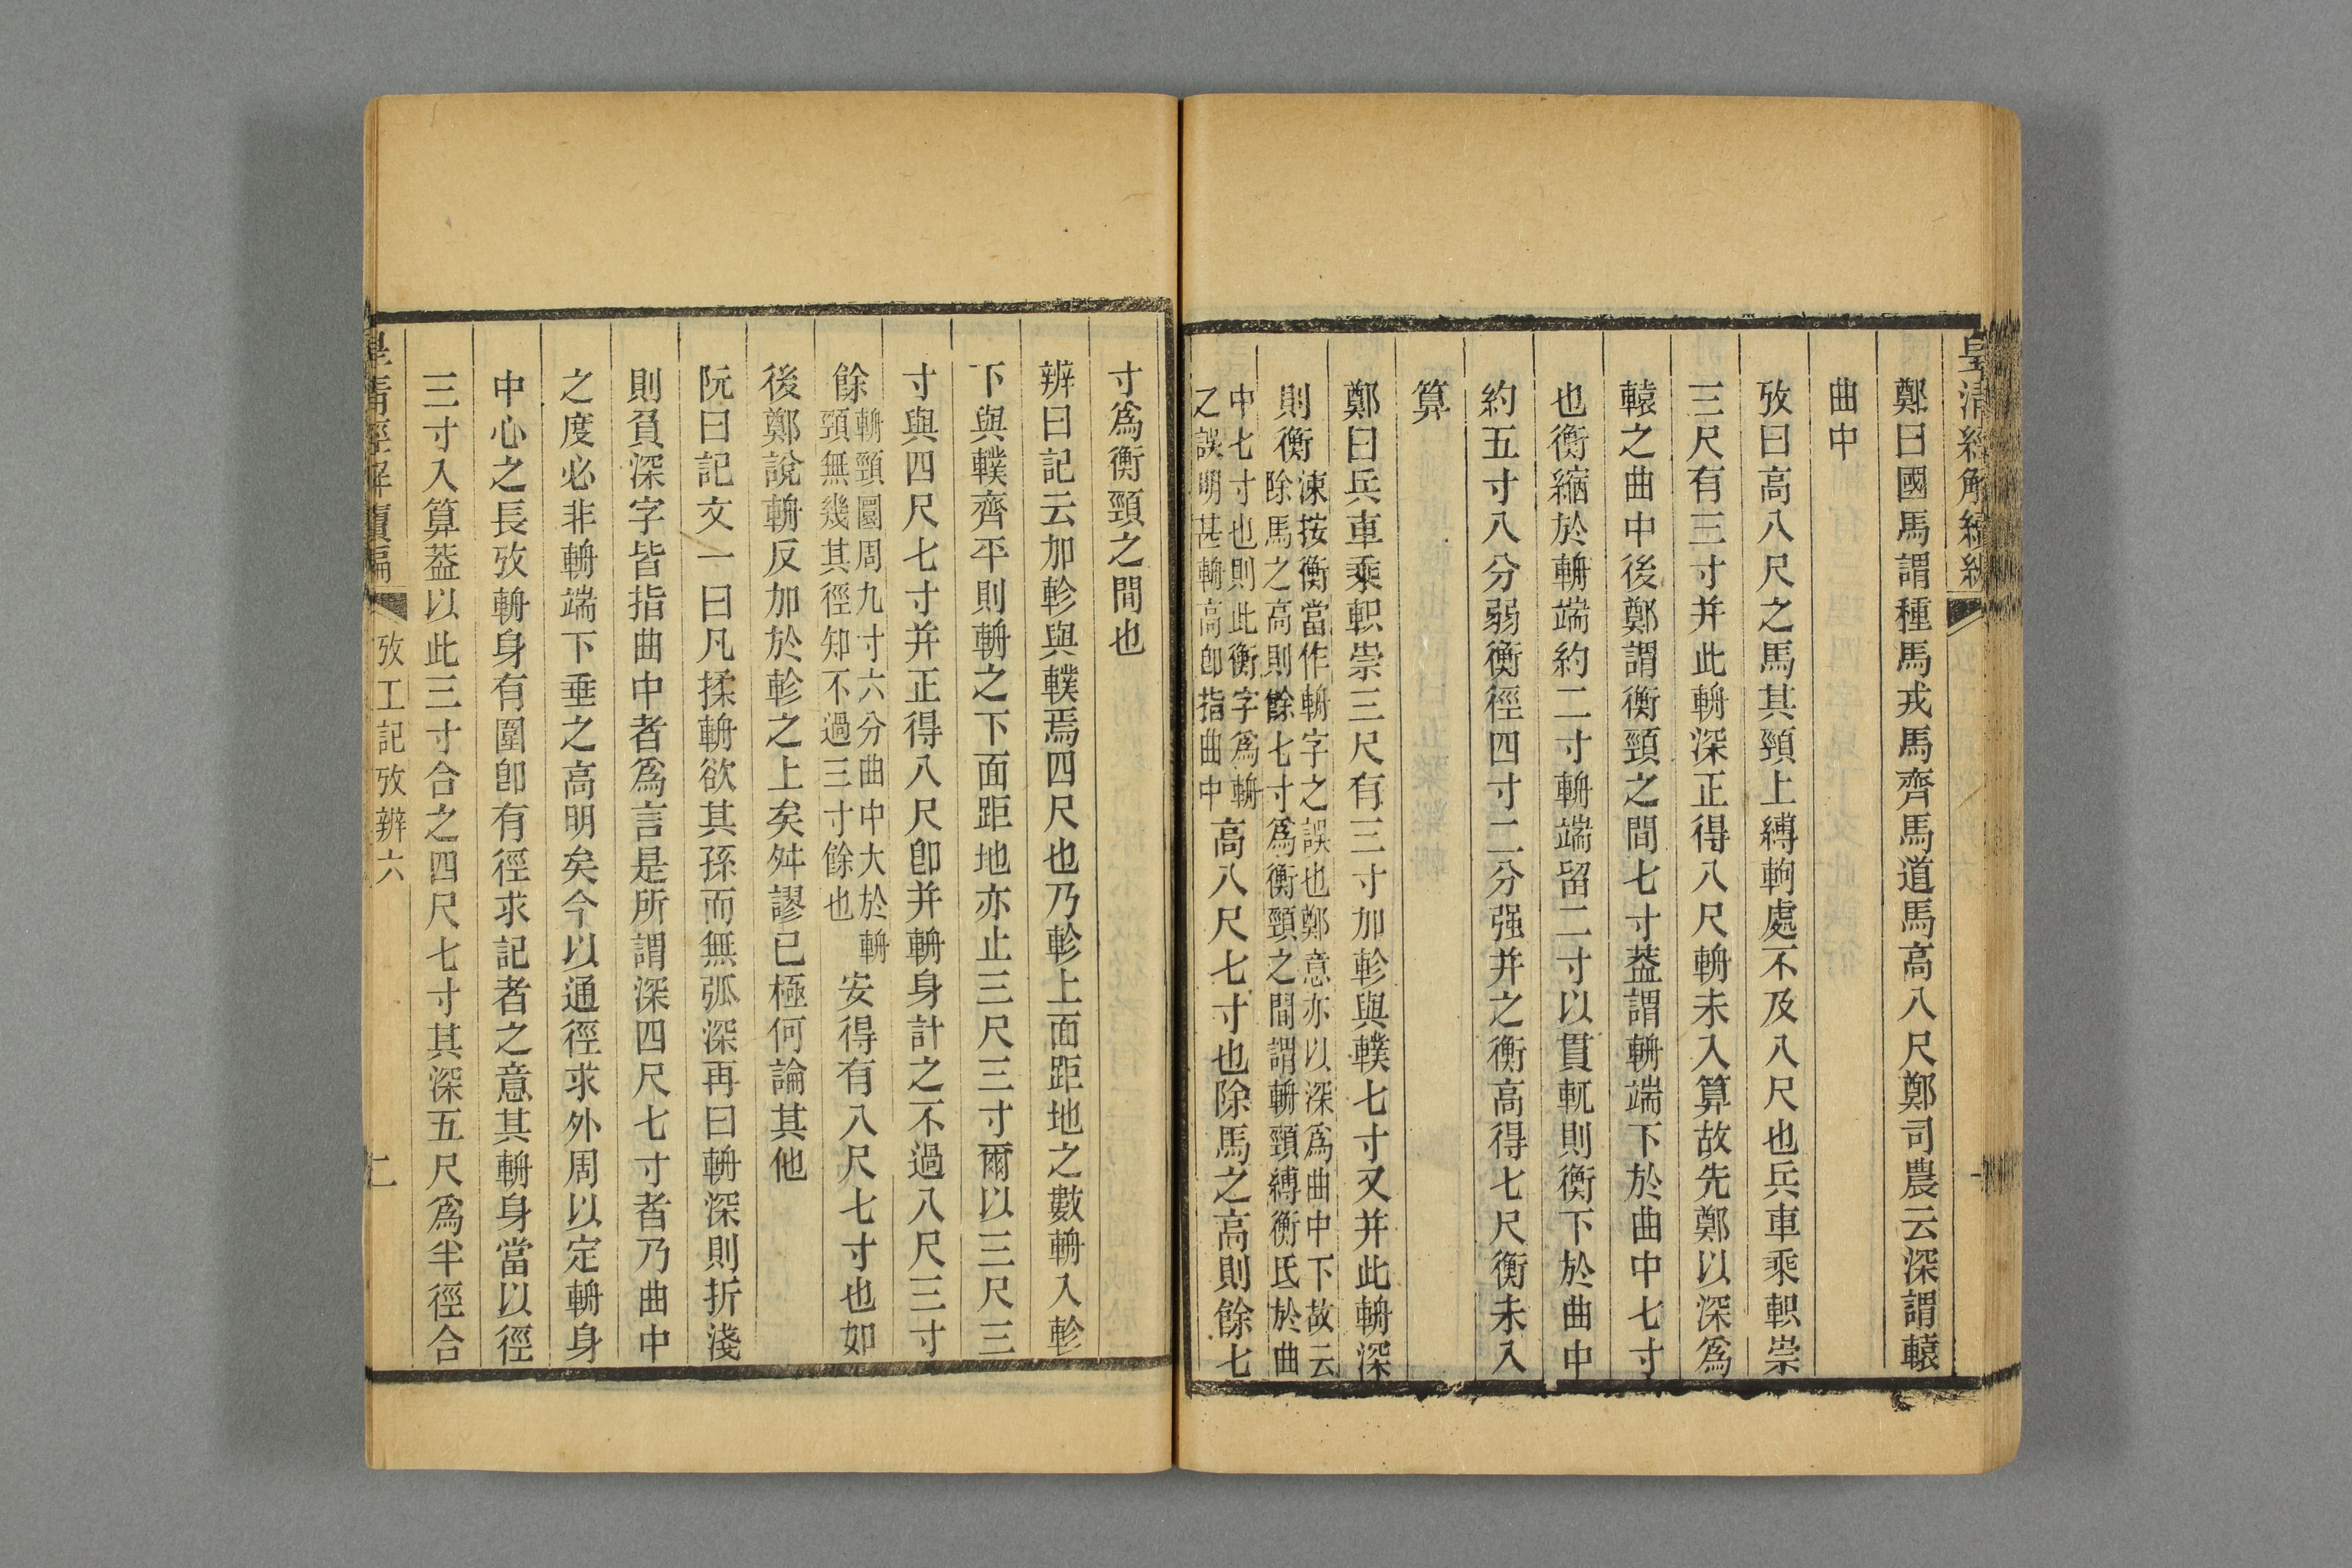 皇清經解續編
鄭曰國馬謂種馬戎馬齊馬道馬高八尺鄭司農云深謂轅
曲中
攷曰高八尺之馬其頸上縛軥處不及八尺也兵車乘軹崇
三尺有三寸并此輈深正得八尺輈未入算故先鄭以深爲
轅之曲中後鄭謂衡頸之間七寸葢謂輈端下於曲中七寸
也衡縮於輈端約二寸輈端留二寸以貫軏則衡下於曲中
約五寸八分弱衡徑四寸二分强并之衡高得七尺衡未入
算
鄭曰兵車乘軹崇三尺有三寸加軫與轐七寸又并此輈深
則衡涑按衡當作輈字之誤也鄭意亦以深爲曲中下故云
除馬之高則餘七寸爲衡頸之間謂輈頸縛衡氐於曲
中七寸也則此衡字爲輈
之誤明甚輈高卽指曲中高八尺七寸也除馬之高則餘七
寸爲衡頸之間也
辨曰記云加軫與轐焉四尺也乃軫上面距地之數輈入軫
下與轐齊平則輈之下面距地亦止三尺三寸爾以三尺三
寸與四尺七寸并正得八尺卽并輈身計之不過八尺三寸
餘輈頸圜周九寸六分曲中大於輈
頸無幾其徑知不過三寸餘也安得有八尺七寸也如
後鄭說輈反加於軫之上矣舛謬已極何論其他
阮曰記文一曰凡揉輈欲其孫而無弧深再曰輈深則折淺
則負深字皆指曲中者爲言是所謂深四尺七寸者乃曲中
之度必非輈端下垂之高明矣今以通徑求外周以定輈身
中心之長攷輈身有圍卽有徑求記者之意其輈身當以徑
三寸入算葢以此三寸合之四尺七寸其深五尺爲半徑合
皇清經解續編
攷工記攷辨六
二